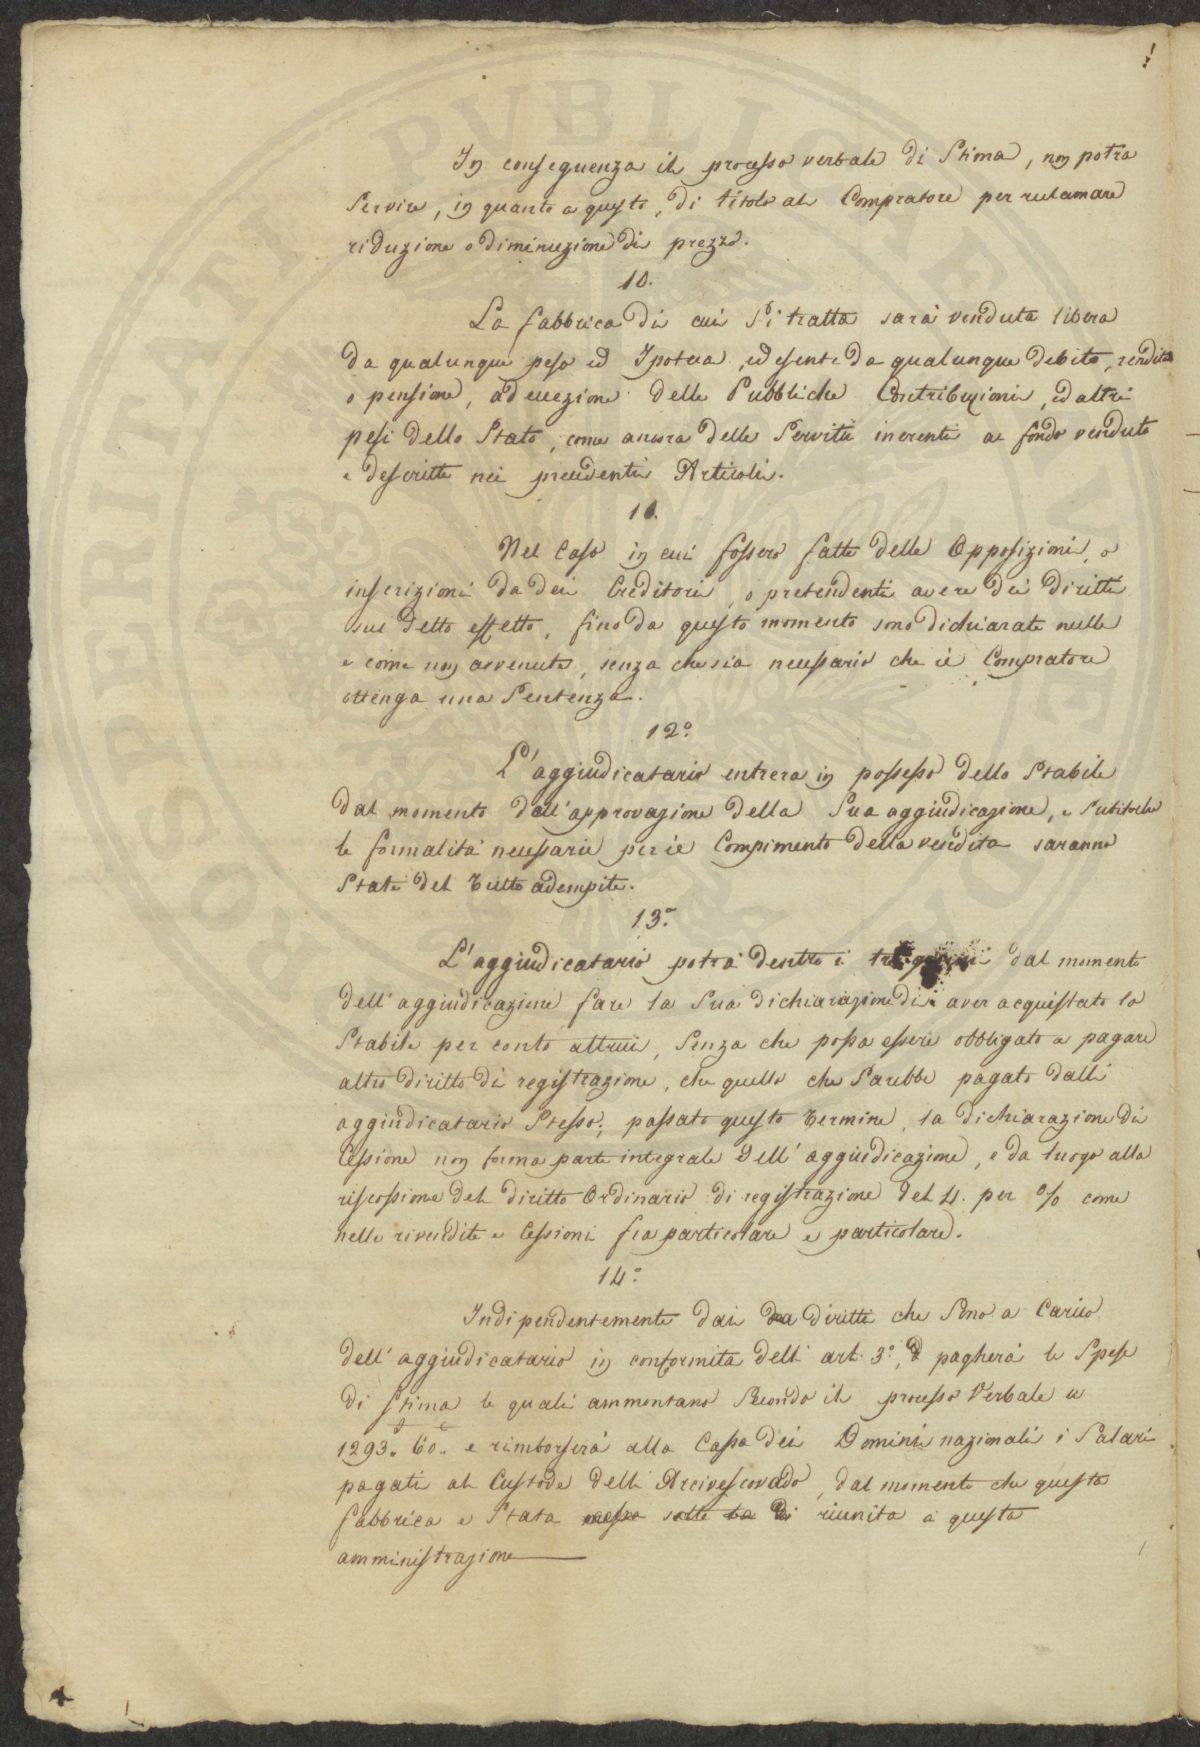 In conseguenza il processo verbale di Stima, non potra
Servire, in quanto a questo, di titolo al Compratore per reclamare
riduzione o diminuzione di prezzo.
10.
La fabbrica di cui Si tratta sarà venduta libera
da qualunque peso ed Ipoteca, ed esente da qualunque debito, rendita
o pensione, ad eccezione delle Pubbliche Contribuzioni, ed altri
pesi dello Stato, come ancora delle Servitù inerenti al fondo venduto
e descritte nei precedenti Articoli.
11.
Nel Caso in cui fossero fatte delle Opposizioni, o
inscrizioni da dei Creditori, o pretendenti avere dei diritti
sul detto effetto, fino da questo momento sono dichiarate nulle
e come non avvenute, senza che sia necessario che il Compratore
ottenga una Sentenza.
12.°
L'aggiudicatario entrera in possesso dello Stabile
dal momento dell'approvazione della Sua aggiudicazione, e Subitoche
le formalità necessarie per il Compimento della vendita saranno
State del Tutto adempite.
13.°
L'aggiudicatario potrà dentro i tre giorni dal momento
dell'aggiudicazione fare la Sua dichiarazione di aver acquistato lo
Stabile per conto altrui, Senza che possa essere obbligato a pagare
altro diritto di registrazione, che quello che Sarebbe pagato dall'
aggiudicatario Stesso; passato questo Termine, la dichiarazione di
Cessione non forma parte integrale dell'aggiudicazione, e da luogo alla
riscossione del diritto Ordinario di registrazione del 4. per % come
nelle rivendite e Cessioni fra particolare e particolare.
14.°
Indipendentemente dai diritti che Sono a Carico
dell'aggiudicatario in conformita dell' art. 3.°, pagherà le Spese
di Stima le quali ammontano Secondo il processo Verbale a
1293. 60. e rimborserà alla Cassa dei Domini nazionali i Salari
pagati al Custode dell'Arcivescovado, dal momento che questa
fabbrica e Stata messa sotto la di riunita a questa
amministrazione